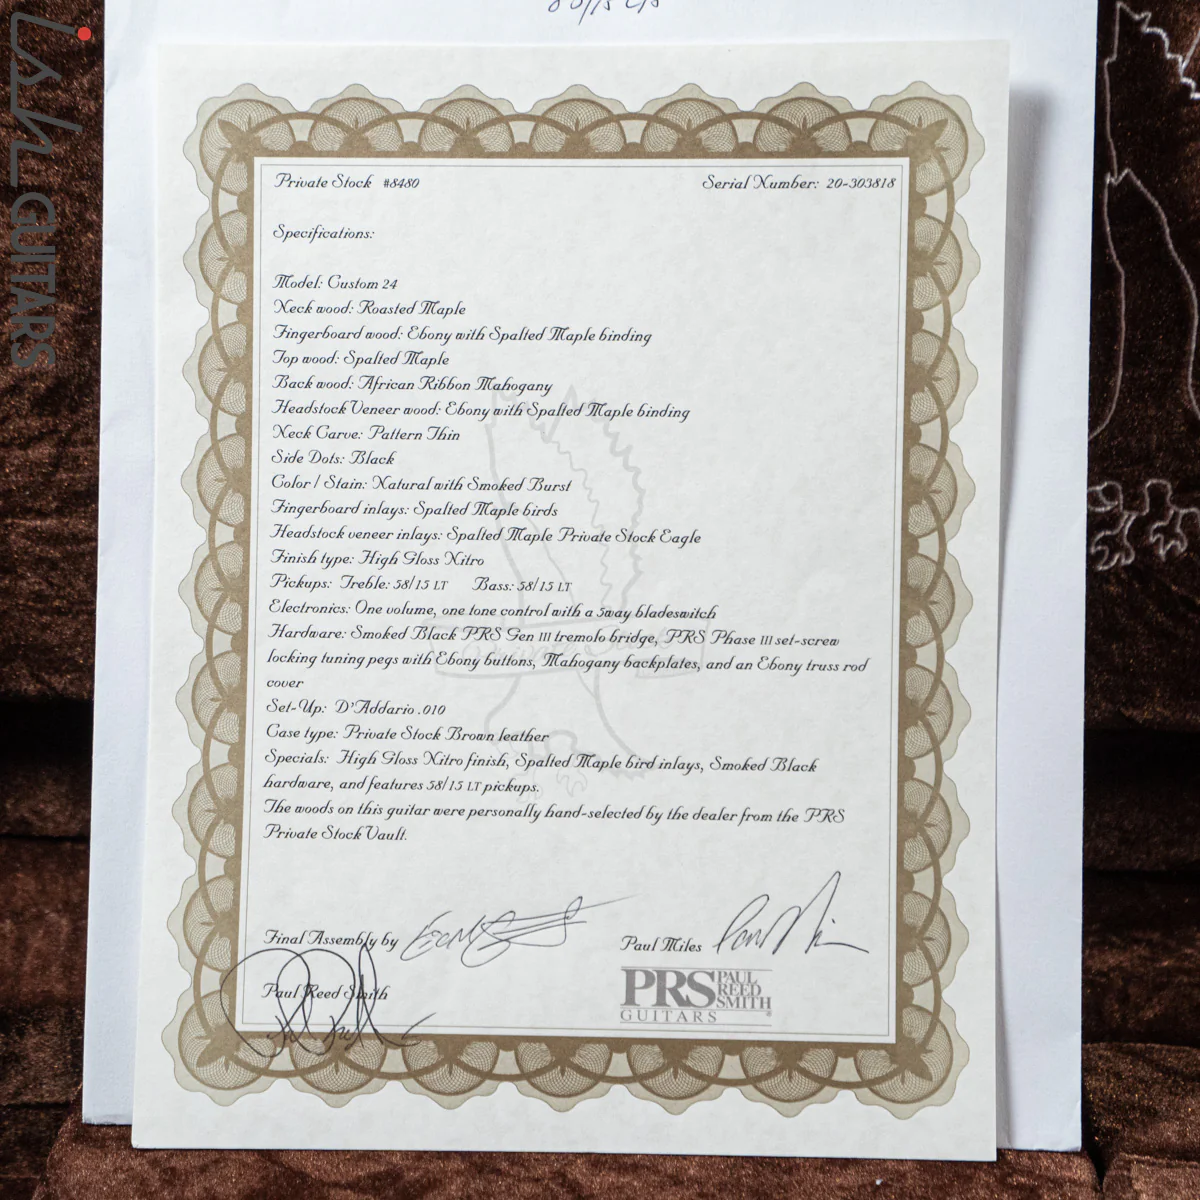 ish GUITARS
Private Stock #8480
Serial Number: 20-303818
Specifications:
Model: Custom 24
Neck wood: Roasted Maple
Fingerboard wood: Ebony with Spalted Maple binding
Top wood: Spalted Maple
Back wood: African Ribbon Mahogany
Headstock Veneer wood: Ebony with Spalted Maple binding
Neck Carve: Pattern Thin
Side Dots: Black
Color / Stain: Natural with Smoked Burst
Fingerboard inlays: Spalted Maple birds
Headstock veneer inlays: Spalted Maple Private Stock Eagle
Finish type: High Gloss Nitro
Pickups: Treble: 58/15 LT Bass: 58/15 LT
Electronics: One volume, one tone control with a 5way bladeswitch
Hardware: Smoked Black PRS Gen III tremolo bridge, PRS Phase III set-screw
locking tuning pegs with Ebony buttons, Mahogany backplates, and an Ebony truss rod
cover
Set-Up: D'Addario .010
Case type: Private Stock Brown leather
Specials: High Gloss Nitro finish, Spalted Maple bird inlays, Smoked Black
hardware, and features 58/15 LT pickups.
The woods on this guitar were personally hand-selected by the dealer from the PRS
Private Stock Vault.
Final Assembly by
Paul Miles
Paul Reed Smith
PRS PAUL
REED
SMITH
GUITARS